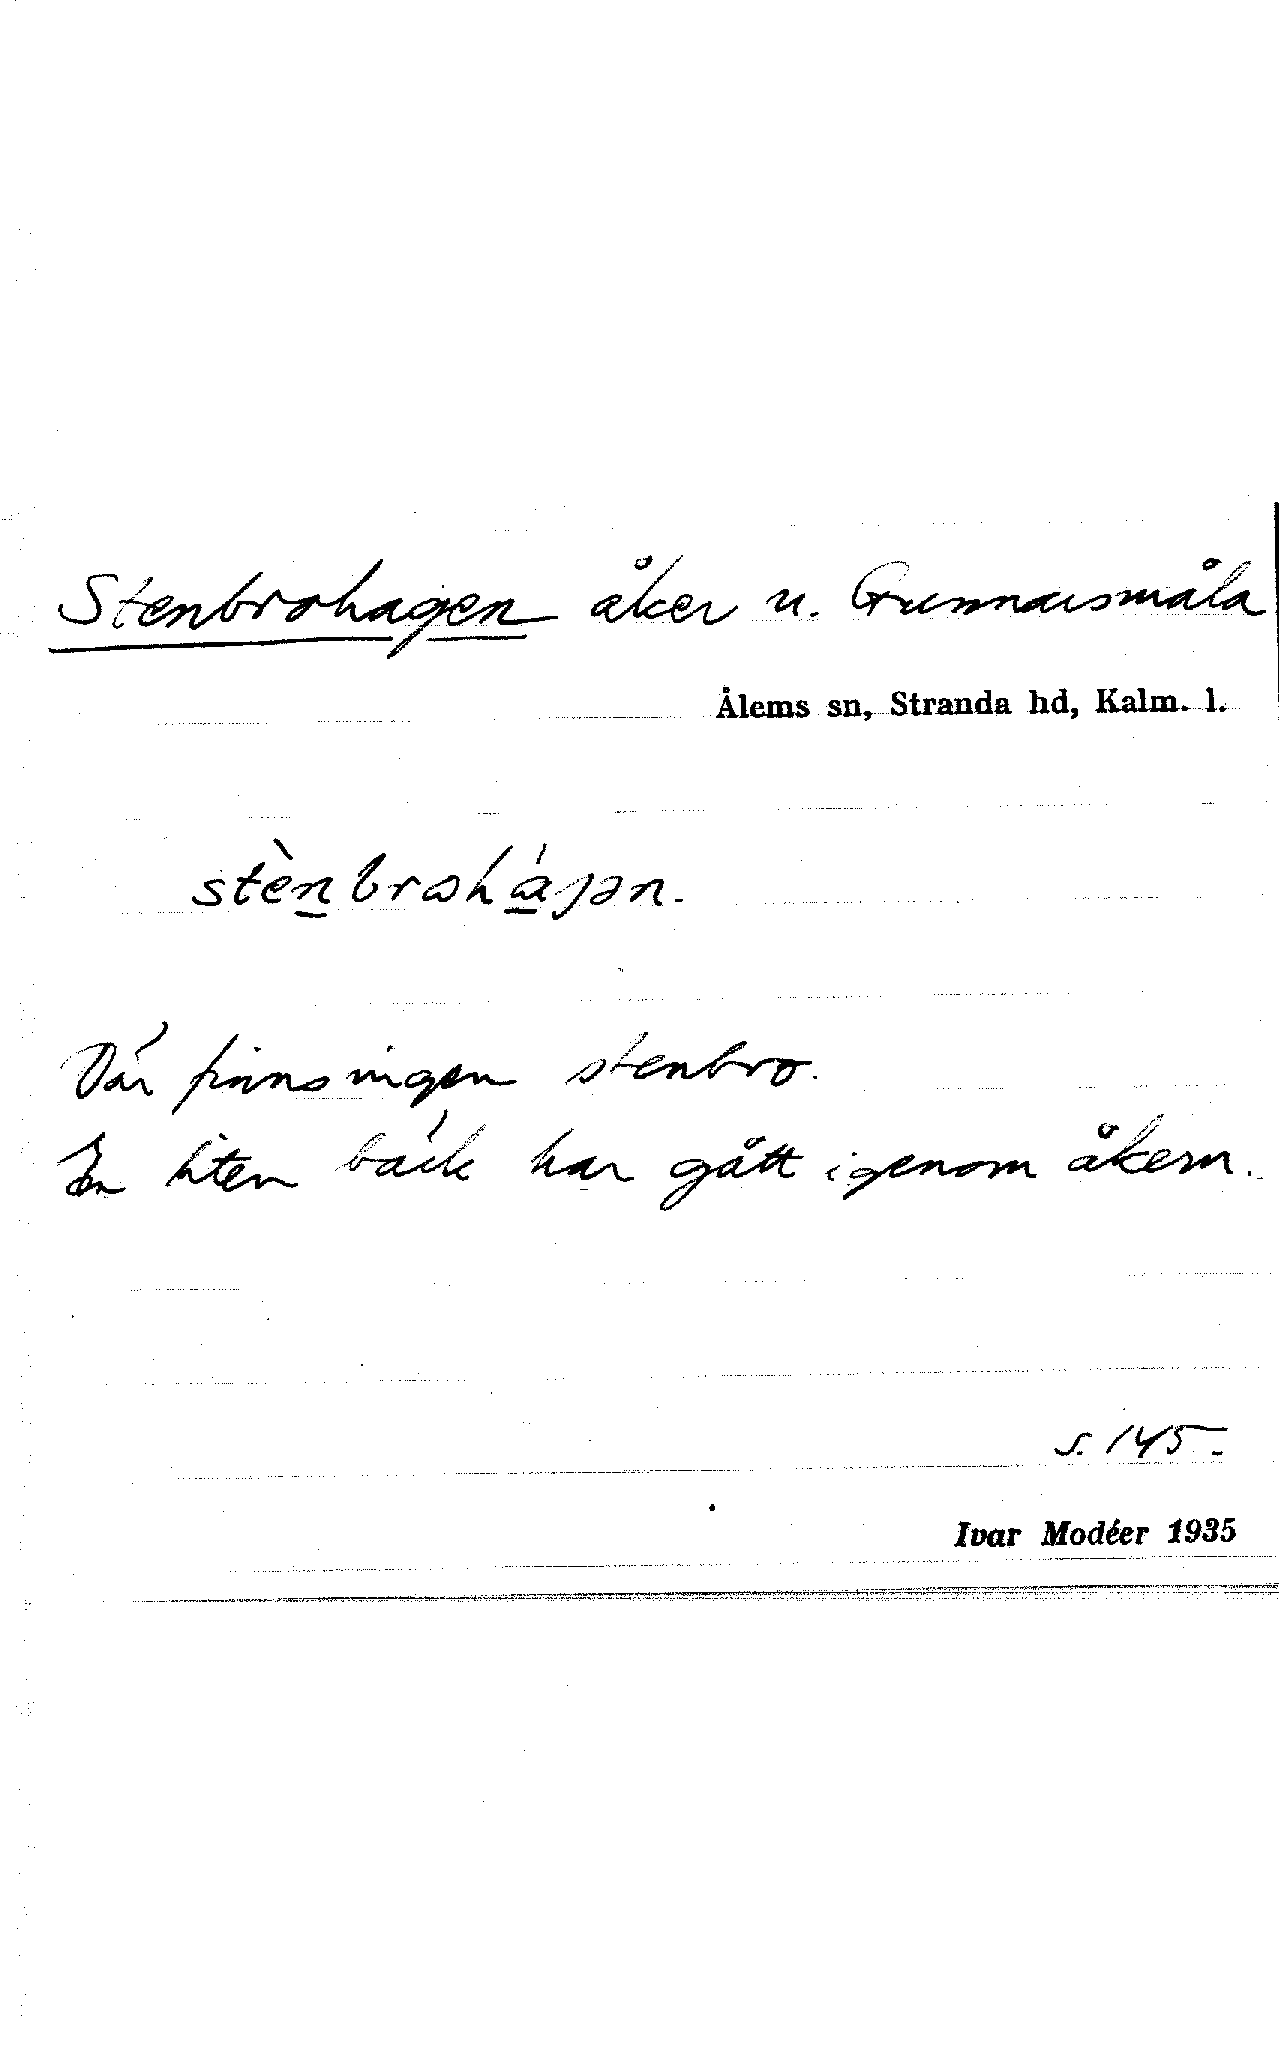 Stenbrohagen åker u. Gunnarsmåla
Ålems sn, Stranda hd, Kalm. l.
stènbrωháγən.
Där finns ingen stenbro.
En liten bäck har gått igenom åkern.
s. 145.
Ivar Modéer 1935